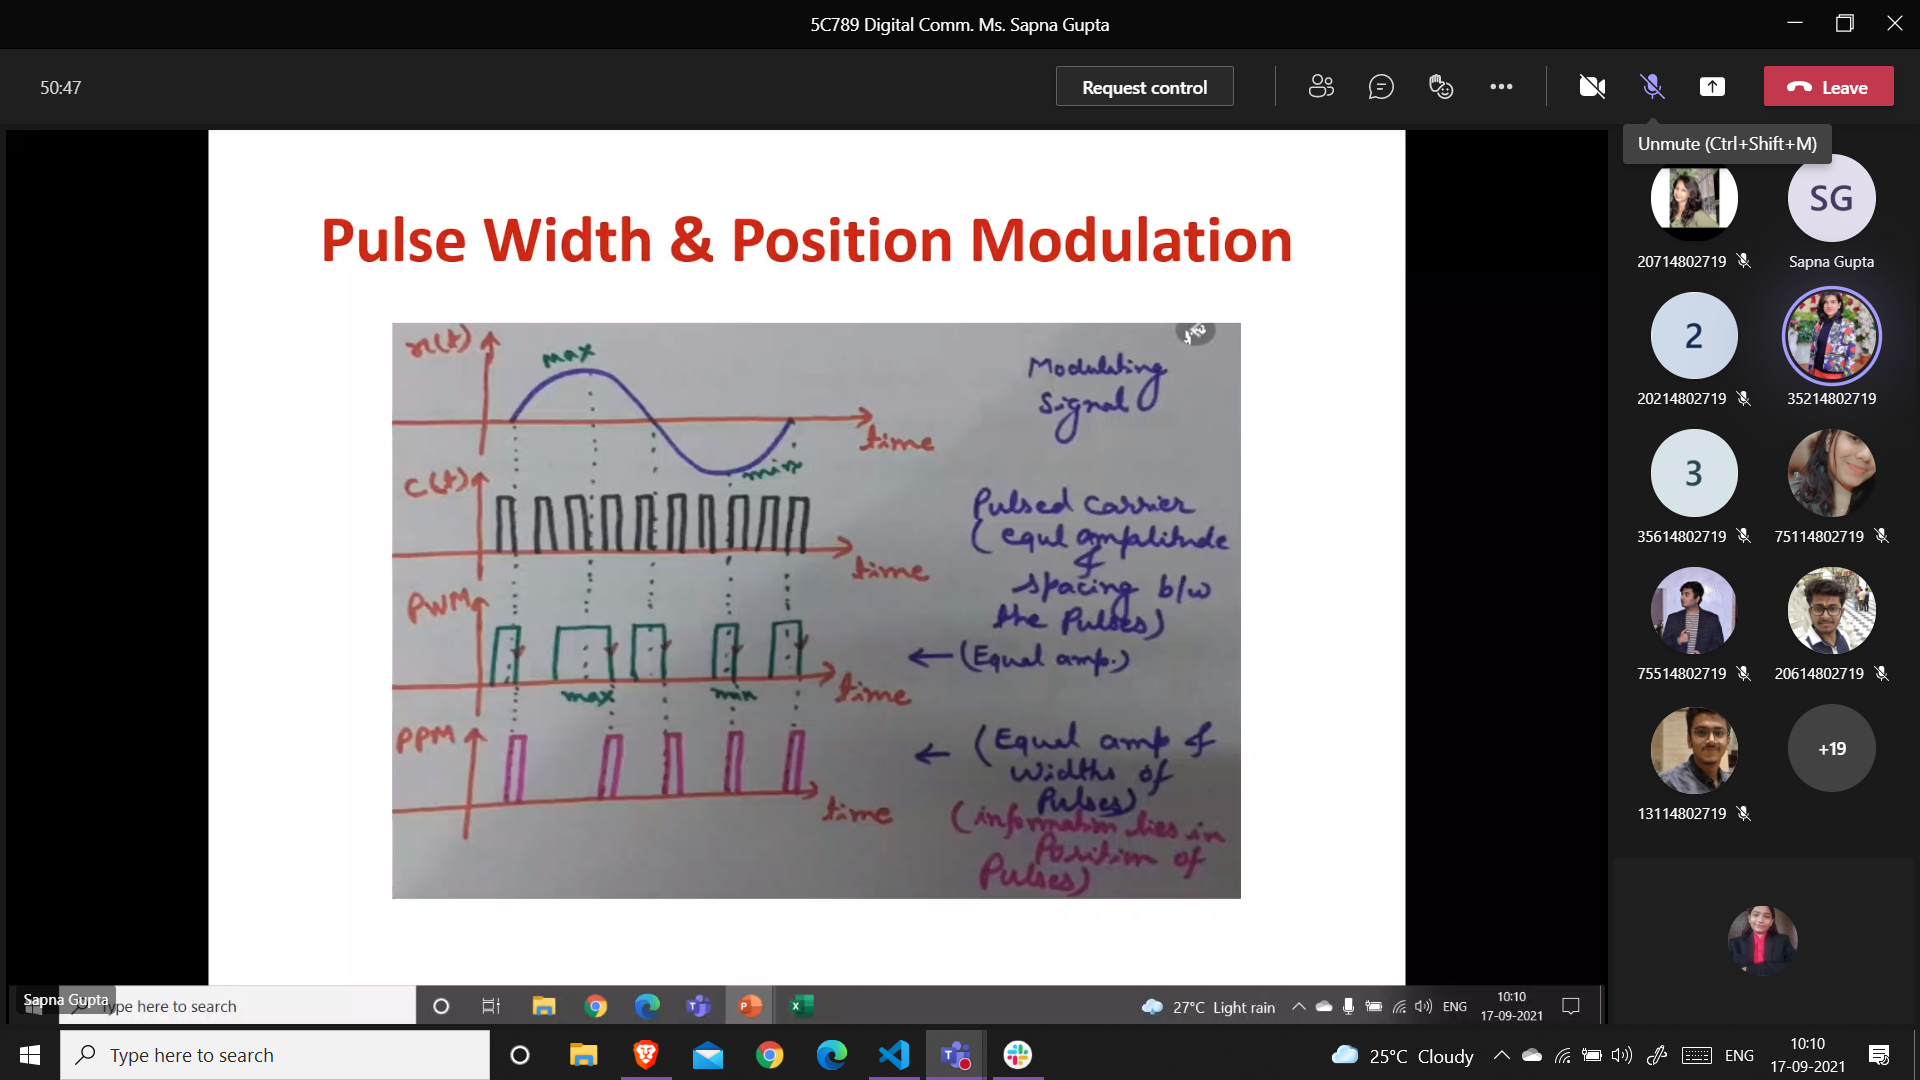 5C789 Digital Comm. Ms. Sapna Gupta
50:47
Request control
Leave
Unmute (Ctrl+Shift+M)
Pulse Width & Position Modulation
x(t)
max
min
time
Modulating
Signal
c(t)
time
Pulsed carrier
(equl amplitude
&
spacing b/w
the Pulses)
PWM
max
min
time
← (Equal amp.)
PPM
time
← (Equal amp &
widths of
Pulses)
(information lies in
Position of
Pulses)
20714802719
SG
Sapna Gupta
2
20214802719
35214802719
3
35614802719
75114802719
75514802719
20614802719
13114802719
+19
Sapna Gupta
Type here to search
27°C Light rain
ENG
10:10
17-09-2021
Type here to search
25°C Cloudy
ENG
10:10
17-09-2021